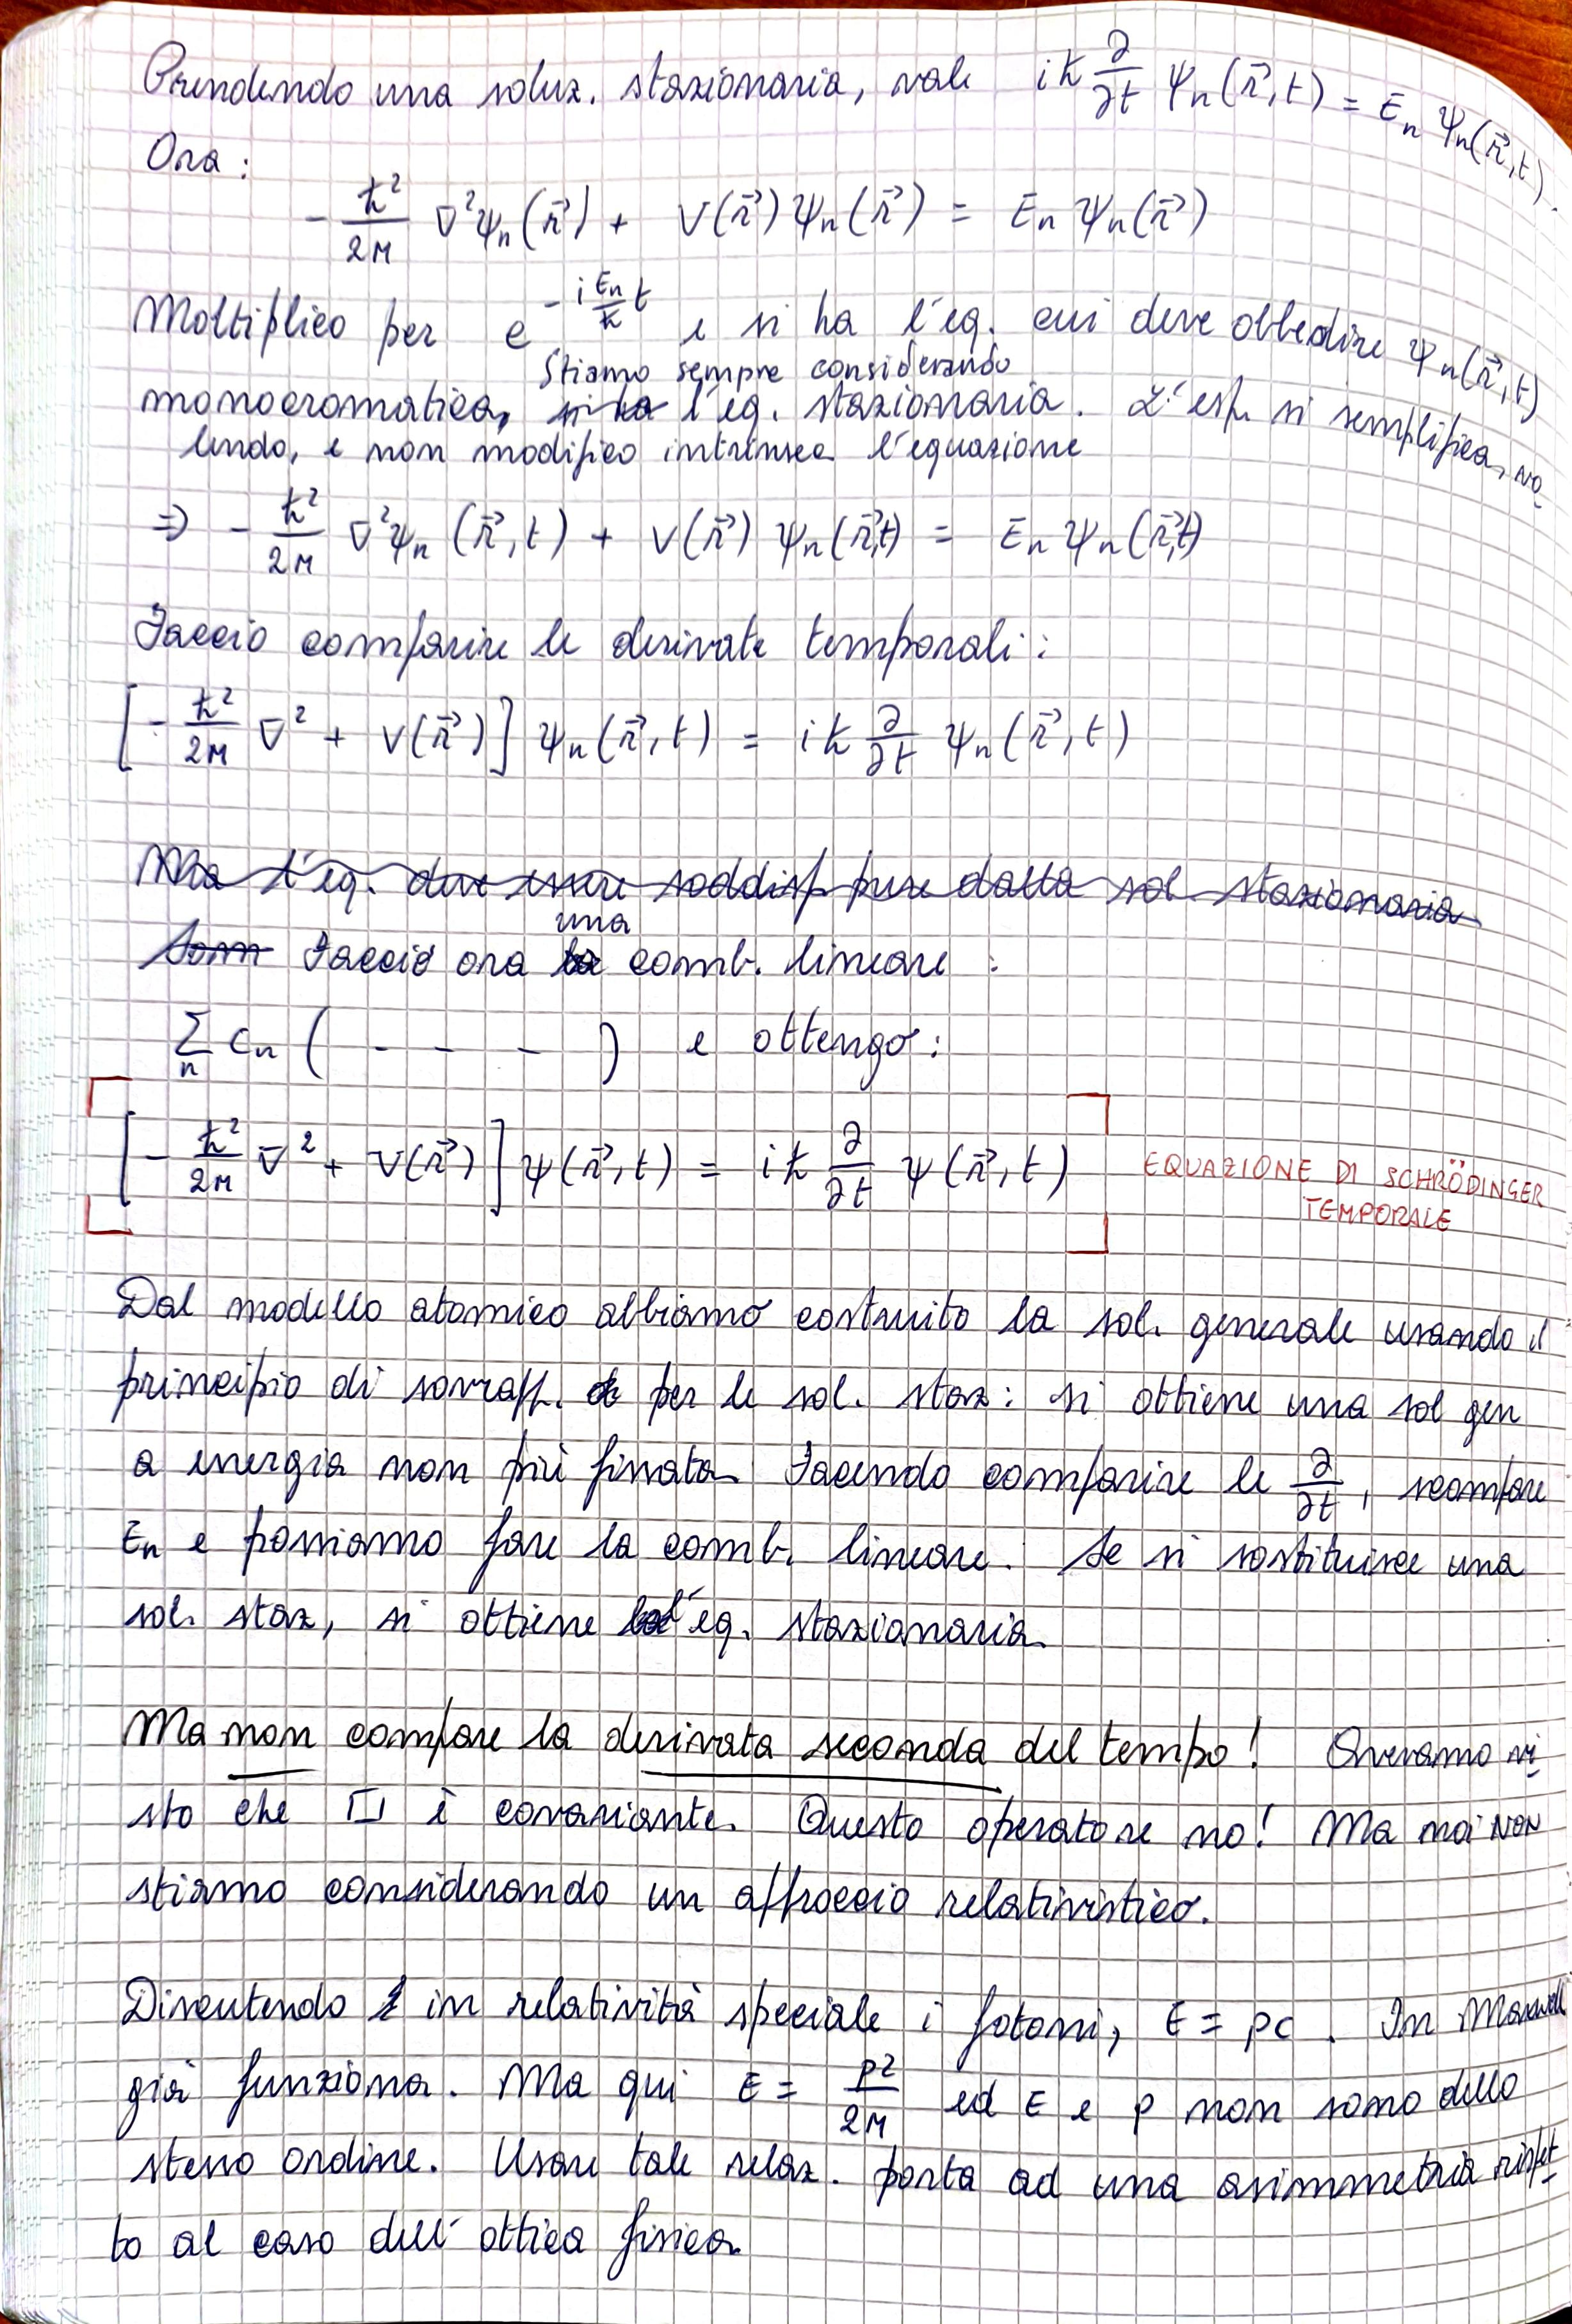 Prendendo una soluz. stazionaria, vale iħ ∂/∂t ψn(r⃗,t) = En ψn(r⃗,t).
Ora:
- ħ²/2M ∇²ψn(r⃗) + V(r⃗) ψn(r⃗) = En ψn(r⃗)
Moltiplico per e^(-i En/ħ t) e si ha l'eq. cui deve obbedire ψn(r⃗,t)
Stiamo sempre considerando
monocromatica, si ha l'eq. stazionaria. L'esp. si semplifica, vo-
lendo, e non modifico intrinsec. l'equazione
⇒ - ħ²/2M ∇²ψn(r⃗,t) + V(r⃗) ψn(r⃗,t) = En ψn(r⃗,t)
Faccio comparire le derivate temporali:
[- ħ²/2M ∇² + V(r⃗)] ψn(r⃗,t) = iħ ∂/∂t ψn(r⃗,t)
Ma l'eq. deve essere soddisf. pure dalla sol. stazionaria
una
Som Faccio ora la comb. lineare:
Σn cn ( - - - ) e ottengo:
[- ħ²/2M ∇² + V(r⃗)] ψ(r⃗,t) = iħ ∂/∂t ψ(r⃗,t) EQUAZIONE DI SCHRÖDINGER
TEMPORALE
Dal modello atomico abbiamo costruito la sol. generale usando il
principio di sovrapp. per le sol. staz: si ottiene una sol gen
a energia non più fissata. Facendo comparire le ∂/∂t, scompare
En e possiamo fare la comb. lineare. Se si sostituisce una
sol. staz, si ottiene l'eq. stazionaria.
Ma non compare la derivata seconda del tempo! Avevamo vi-
sto che □ è covariante. Questo operatore no! Ma noi NON
stiamo considerando un approccio relativistico.
Discutendo in relatività speciale i fotoni, E = pc. In Maxwell
già funziona. Ma qui E = p²/2M ed E e p non sono dello
stesso ordine. Usare tale relaz. porta ad una asimmetria rispet-
to al caso dell'ottica fisica.